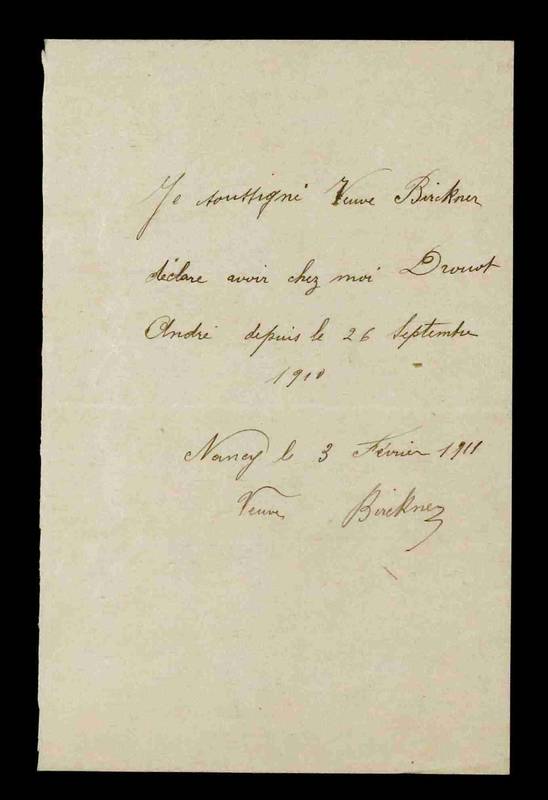 Je soussigné Veuve Birckner
déclare avoir chez moi Drouot
André depuis le 26 Septembre
1910
Nancy le 3 Février 1911
Veuve Birckner